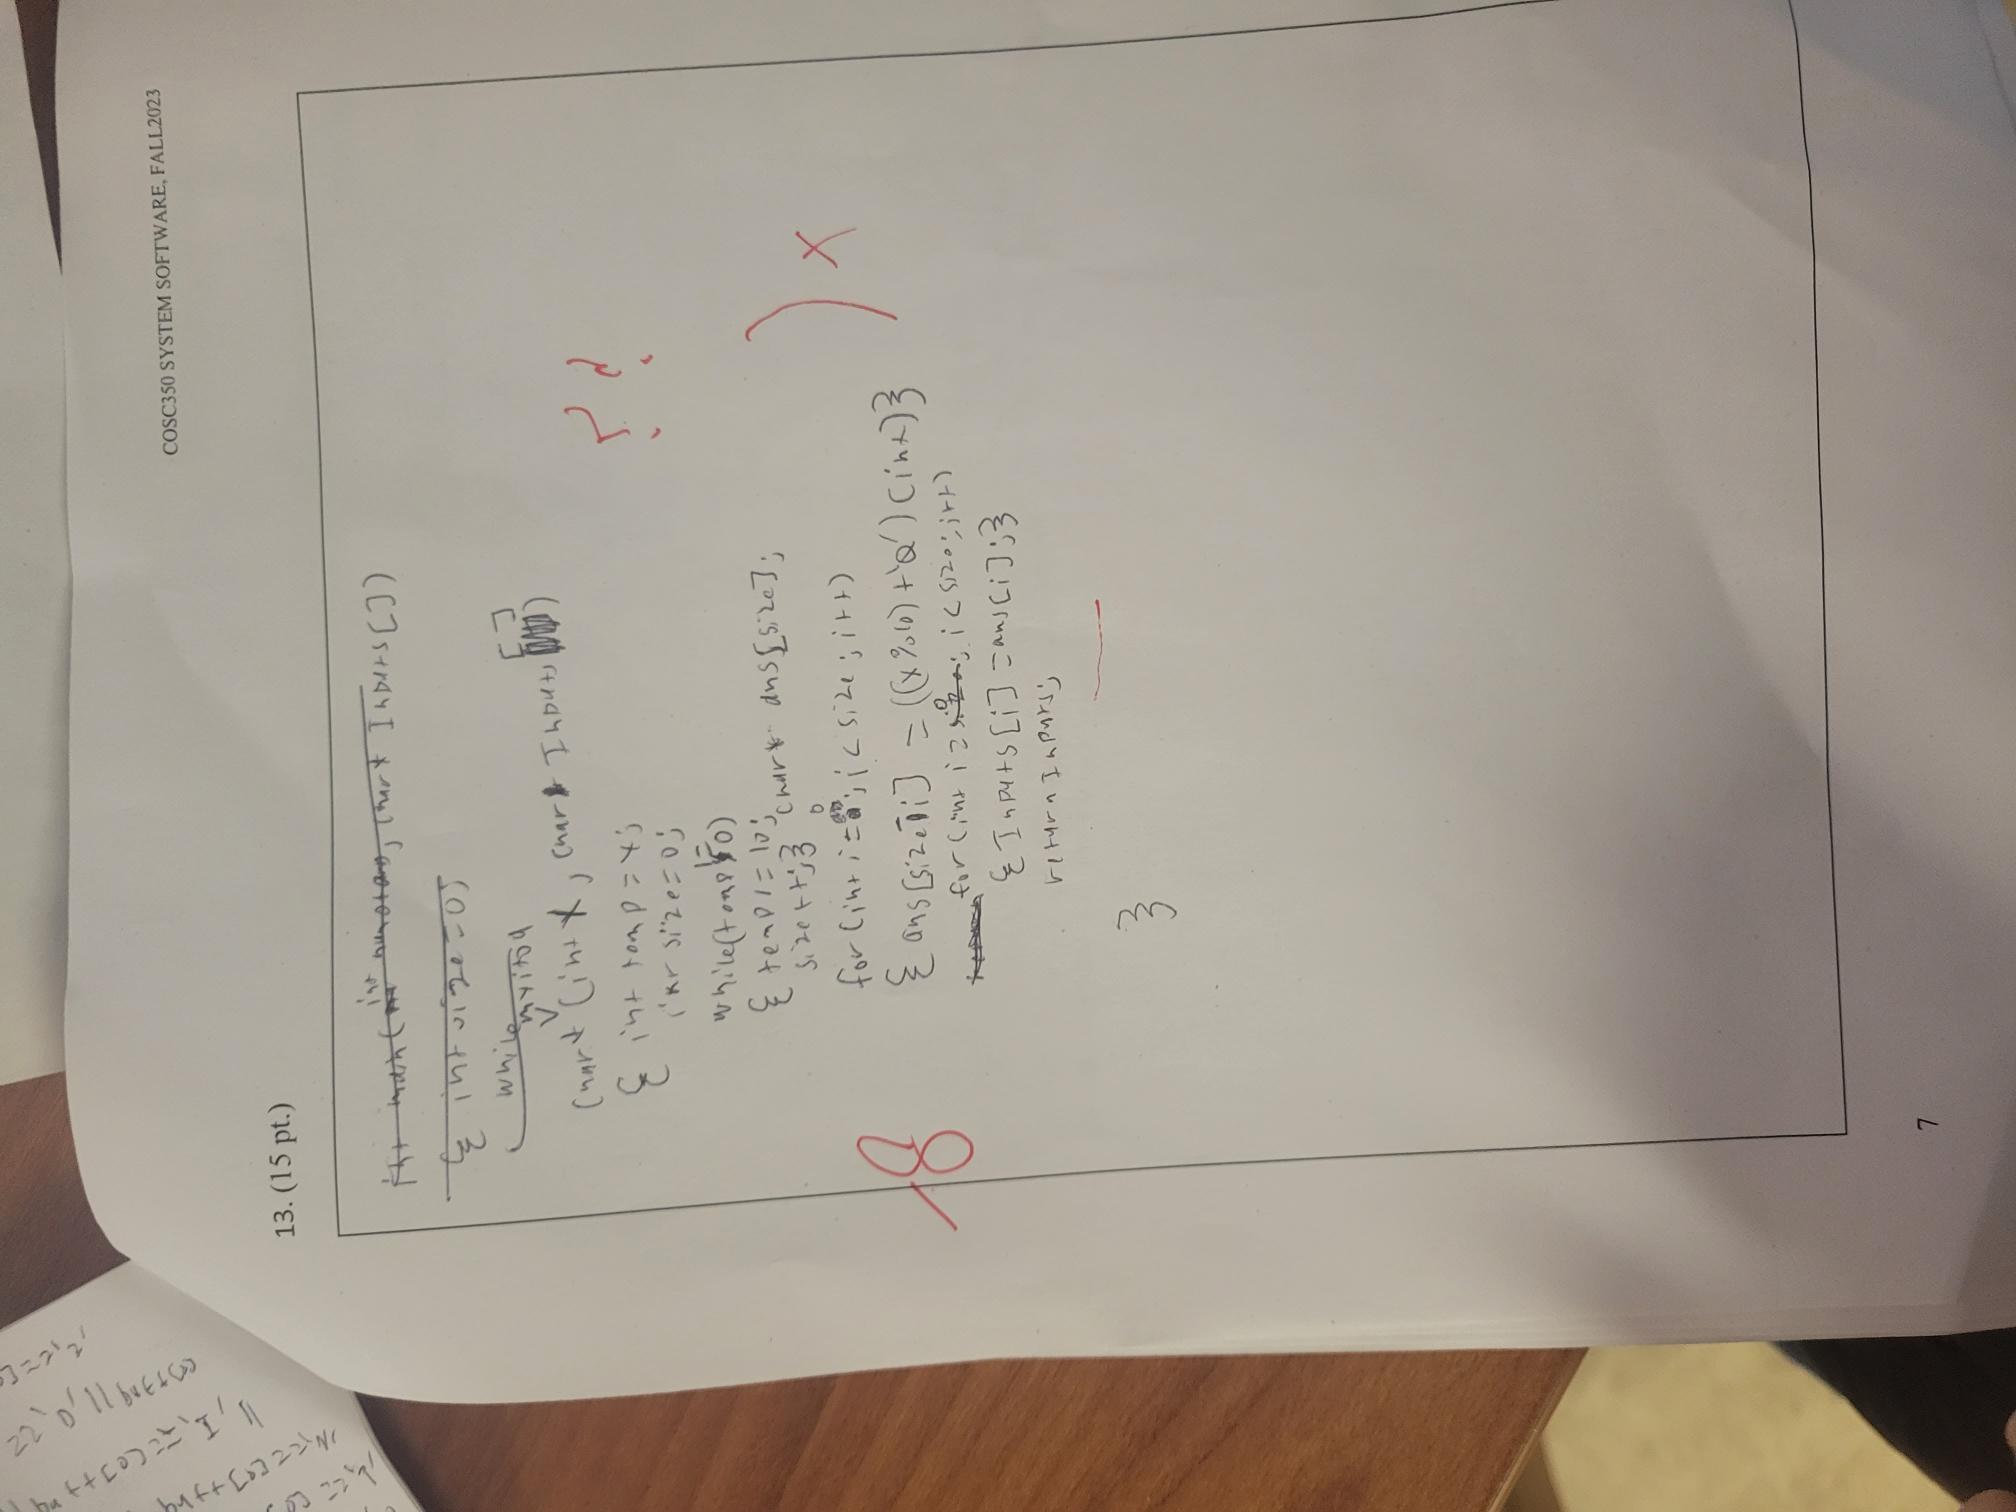 COSC350 SYSTEM SOFTWARE, FALL2023
13. (15 pt.)
int main(int numofarg, char* Inputs[])
{ int size=0;
while
myitoa
char* (int x, char Inputs[])
? ?
{ int temp = x;
int size=0;
while(temp!=0)
{ temp/=10;
size++;} char* ans[size];
for(int i=0; i<size; i++)
X
-8
{ ans[size-i] = ((x%10)+'0')(int)}
for(int i=0; i<size; i++)
{ Inputs[i] =ans[i];}
return Inputs;
}
7